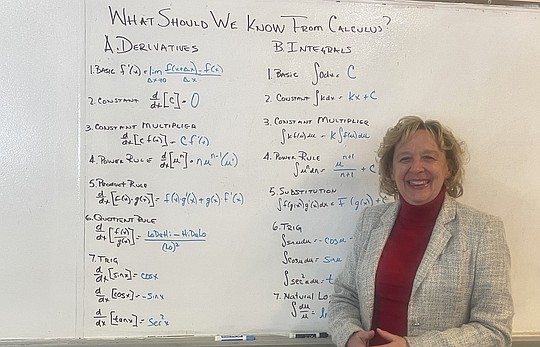 WHAT SHOULD WE KNOW FROM CALCULUS?
A. DERIVATIVES
1. BASIC f'(x) = lim Δx→0 f(x+Δx) - f(x) / Δx
2. CONSTANT d/dx [c] = 0
3. CONSTANT MULTIPLIER
d/dx [c f(x)] = c f'(x)
4. POWER RULE d/dx [uⁿ] = n uⁿ⁻¹ (u')
5. PRODUCT RULE
d/dx [f(x)·g(x)] = f(x)·g'(x) + g(x)·f'(x)
6. QUOTIENT RULE
d/dx [f(x)/g(x)] = LoDeHi - HiDeLo / (Lo)²
7. TRIG
d/dx [sinx] = cosx
d/dx [cosx] = -sinx
d/dx [tanx] = sec²x
B. INTEGRALS
1. BASIC ∫0dx = C
2. CONSTANT ∫kdx = kx + C
3. CONSTANT MULTIPLIER
∫kf(u)du = k∫f(u)du
4. POWER RULE
∫uⁿdu = uⁿ⁺¹/n+1 + C
5. SUBSTITUTION
∫f(g(x))g'(x)dx = F(g(x)) +
6. TRIG
∫sinudu = -cosu
∫cosudu = sinu
∫sec²udu = t
7. NATURAL LO
∫du/u = l